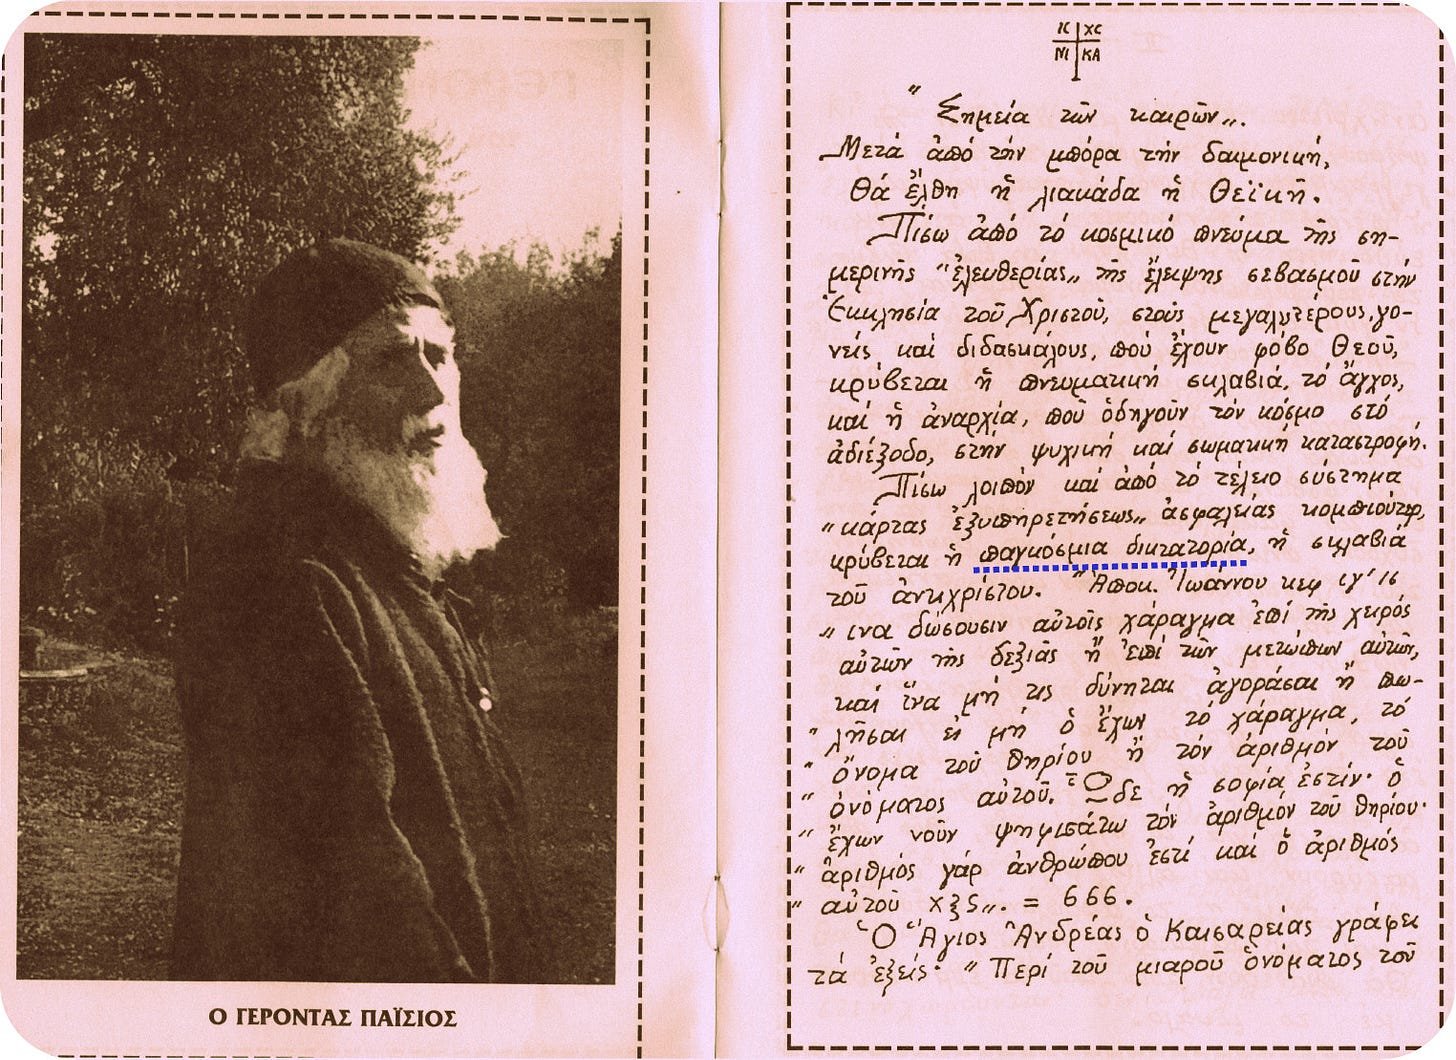 Ο ΓΕΡΟΝΤΑΣ ΠΑΪΣΙΟΣ
IC XC
NI KA
"Σημεία τῶν καιρῶν„.
Μετά ἀπό τήν μπόρα τήν δαιμονική,
Θά ἔλθη ἡ λιακάδα ἡ Θεϊκή.
Πίσω ἀπό τό κοσμικό πνεύμα τῆς ση-
μερινῆς "ἐλευθερίας„ τῆς ἔλειψης σεβασμοῦ στήν
Ἐκκλησία τοῦ Χριστοῦ, στούς μεγαλυτέρους, γο-
νείς καί διδασκάλους, πού ἔχουν φόβο Θεοῦ,
κρύβεται ἡ πνευματική σκλαβιά, τό ἄγχος,
καί ἡ ἀναρχία, πού ὁδηγοῦν τόν κόσμο στό
ἀδιέξοδο, στήν ψυχική καί σωματική καταστροφή.
Πίσω λοιπόν καί ἀπό τό τέλειο σύστημα
"κάρτας ἐξυπηρετήσεως„ ἀσφαλείας κομπιούτερ,
κρύβεται ἡ παγκόσμια δικτατορία, ἡ σκλαβιά
τοῦ ἀντιχρίστου. "Ἀποκ. Ἰωάννου κεφ ιγ' 16
„ ινα δώσουσιν αὐτοῖς χάραγμα ἐπί τῆς χειρός
αὐτῶν τῆς δεξιάς ἤ ἐπί τῶν μετώπων αὐτῶν,
καί ἵνα μή τις δύνηται ἀγοράσαι ἤ πω-
" λῆσαι εἰ μή ὁ ἔχων τό χάραγμα, τό
" ὄνομα τοῦ θηρίου ἤ τόν ἀριθμόν τοῦ
" ὀνόματος αὐτοῦ. Ὧδε ἡ σοφία ἐστίν· ὁ
" ἔχων νοῦν ψηφισάτω τόν ἀριθμόν τοῦ θηρίου·
" ἀριθμός γάρ ἀνθρώπου ἐστί καί ὁ ἀριθμός
" αὐτοῦ χξς„. = 666.
Ὁ Ἅγιος Ἀνδρέας ὁ Καισαρείας γράφει
τά ἑξεῖς· "Περί τοῦ μιαροῦ ὀνόματος τοῦ